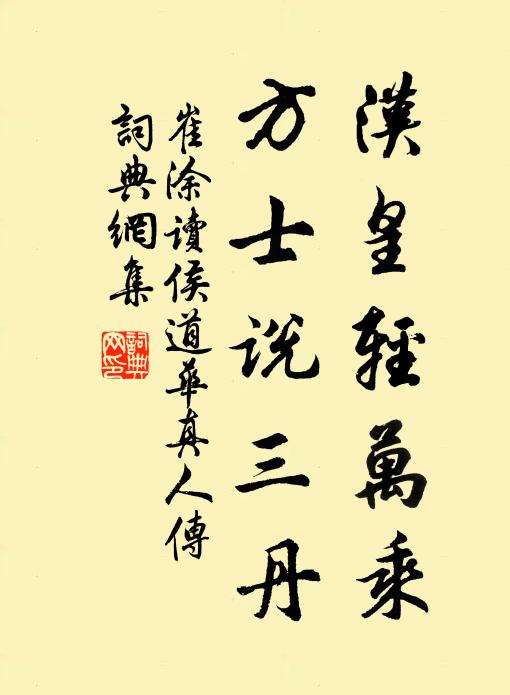 漢皇輕萬乘
方士説三丹
崔涂讀侯道華真人傳
詞典網集
詞典網印